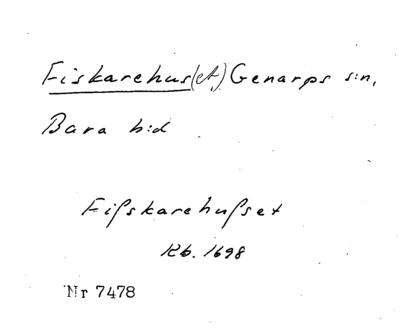 Fiskarehus(et) Genarps s:n,
Bara h:d
Fiſskarehuſset
Kb. 1698
Nr 7478